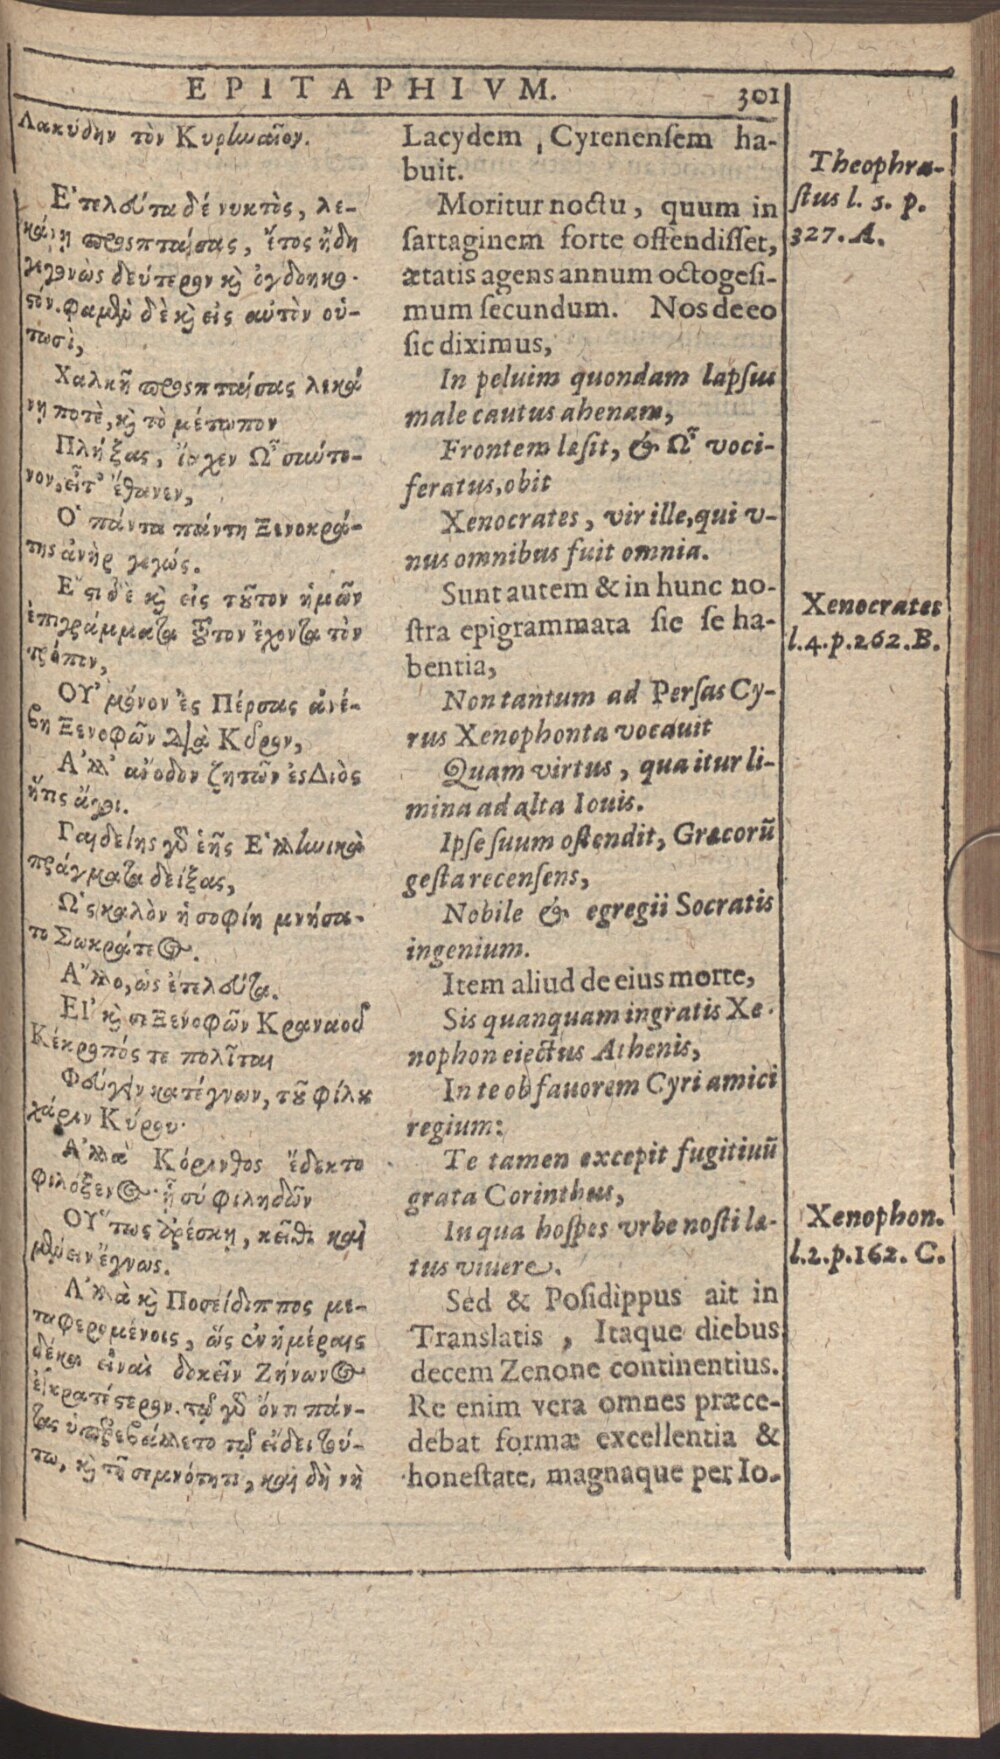 EPITAPHIVM.
301
Λακύδην τὸν Κυρηναῖον.
Ἐτελεύτα δέ νυκτὸς, λε-
κάνῃ προσπταίσας, ἔτος ἤδη
γεγονὼς δεύτερον κὶ ὀγδοηκο-
στόν. φαμὲν δὲ κὶ εἰς αὐτὸν οὑ-
τωσὶ,
Χαλκῆ προσπταίσας λεκά
νῃ ποτὲ, κὶ τὸ μέτωπον
Πλήξας, ἴαχεν Ὦ σιωτο-
νον, εἶτ' ἔθανεν,
Ὁ πάντα πάντη Ξενοκρά-
της ἀνὴρ γεγώς.
Ἔστι δὲ κὶ εἰς τοῦτον ἡμῶν
ἐπιγράμματα τοῦτον ἔχοντα τὸν
τρόπον,
Οὐ μόνον ἐς Πέρσας ἀνέ-
βη Ξενοφῶν διὰ Κῦρον,
Ἀλλ' ἄνοδον ζητῶν ἐς Διὸς
ἥτις ἄγοι.
Παιδείης γὸ ἑῆς Ἑλληνικὰ
πράγματα δείξας,
Ὡς καλὸν ἡ σοφίη μνήσα-
το Σωκράτεος.
Ἄλλο, ὡς ἐτελεύτα.
Εἰ κὶ σε Ξενόφῶν Κραναοῦ
Κέκροπός τε πολῖται
Φεύγειν κατέγνων, τοῦ φίλου
χάριν Κύρου·
Ἀλλὰ Κόρινθος ἔδεκτο
φιλόξενος· ᾗ σύ φιληδῶν
Οὕτως ἀρέσκῃ, κεῖθι καὶ
μένειν ἔγνως.
Ἀλλὰ κὶ Ποσείδιππος με-
ταφερομένοις, ὥς ἐν ἡμέραις
δέκα εἶναι δοκεῖν Ζήνωνος
ἐγκρατέστερον. τῷ γὸ ὄντι πάν-
τας ὑπερεβάλλετο τῷ εἴδει τού-
τω, κὶ τῇ σεμνότητι, καὶ δὴ νὴ
Lacydem, Cyrenenſem ha-
buit.
Moritur noctu, quum in
ſartaginem forte offendiſſet,
ætatis agens annum octogeſi-
mum ſecundum. Nos de eo
ſic diximus,
In peluim quondam lapſus
male cautus ahenam,
Frontem læſit, & Ὦ voci-
feratus, obit
Xenocrates, vir ille, qui v-
nus omnibus fuit omnia.
Sunt autem & in hunc no-
ſtra epigrammata ſic ſe ha-
bentia,
Non tantum ad Perſas Cy-
rus Xenophonta vocauit
Quam virtus, qua itur li-
mina ad alta Iouis.
Ipſe ſuum oſtendit, Græcorũ
geſta recenſens,
Nobile & egregii Socratis
ingenium.
Item aliud de eius morte,
Sis quanquam ingratis Xe-
nophon eiectus Athenis,
In te ob fauorem Cyri amici
regium:
Te tamen excepit fugitiuũ
grata Corinthus,
In qua hoſpes vrbe noſti læ-
tus viuere.
Sed & Poſidippus ait in
Translatis, Itaque diebus
decem Zenone continentius.
Re enim vera omnes præce-
debat formæ excellentia &
honeſtate, magnaque per Io-
Theophra-
ſtus l. 5. p.
327. A.
Xenocrates
l.4.p.262.B.
Xenophon.
l.2.p.162. C.